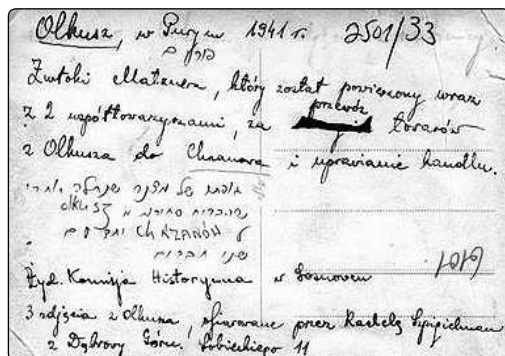 Olkusz, w Purym 1941 r. 2501/33
פורים
Zwłoki Matznera, który został powieszony wraz
przewóz
z 2 współtowarzyszami, za towarów
z Olkusza do Chrzanowa i uprawianie handlu.
של מצנר
OLKUSZ
CHRZANÓW
שני חברים
Żyd. Komisja Historyczna w Sosnowcu
3 zdjęcia z Olkusza, ofiarowane przez Rachelę Szpigielman
z Dąbrowy Górn. Sobieskiego 11